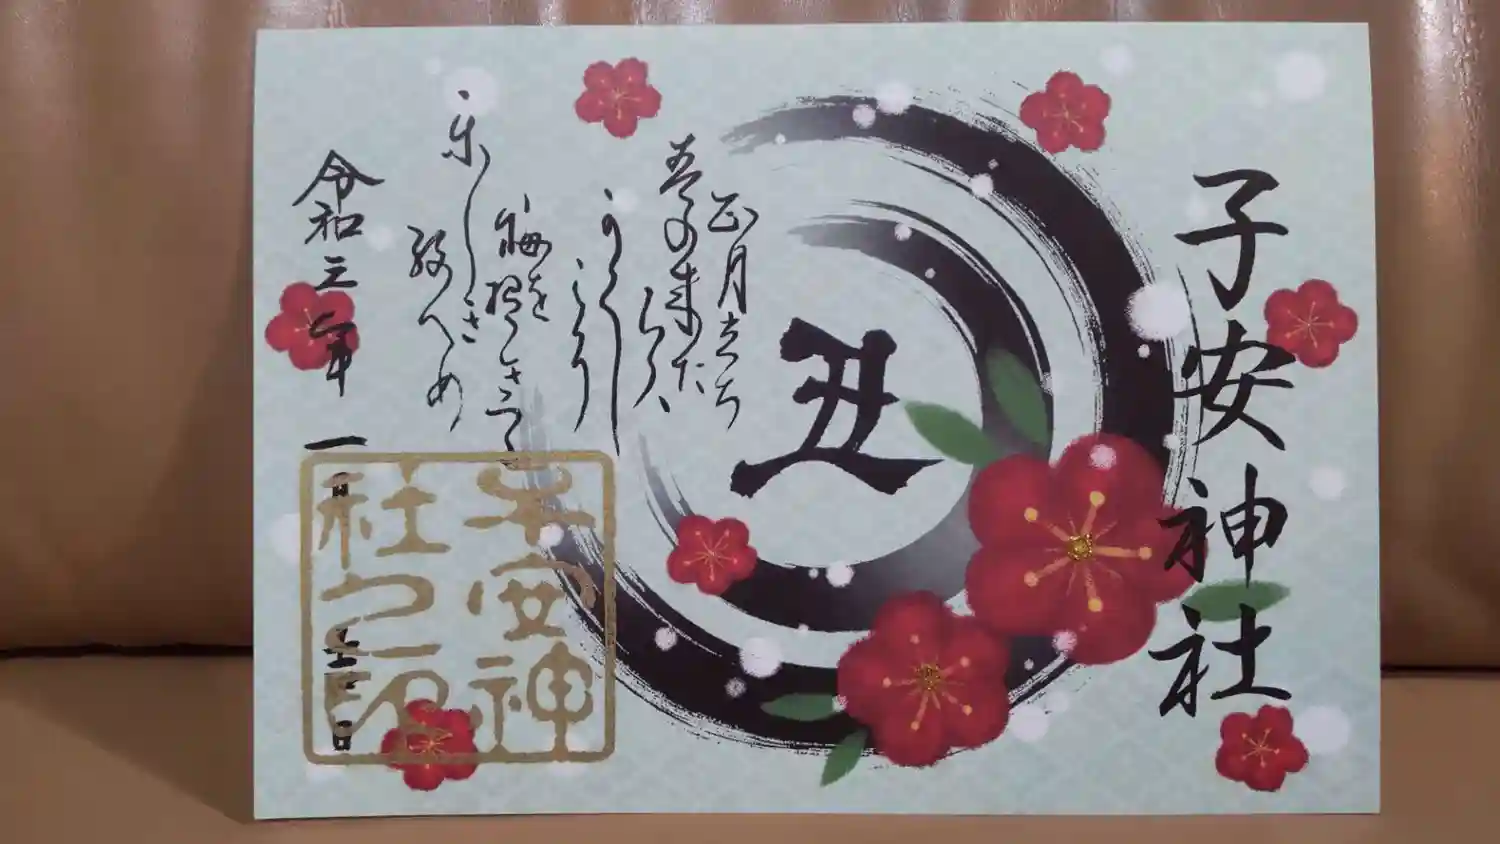 子安神社
丑
正月立ち
春の来た
らば
かくし
こそ
梅を
招きつつ
楽しき
終へめ
令和三年一月
子安神
社之印